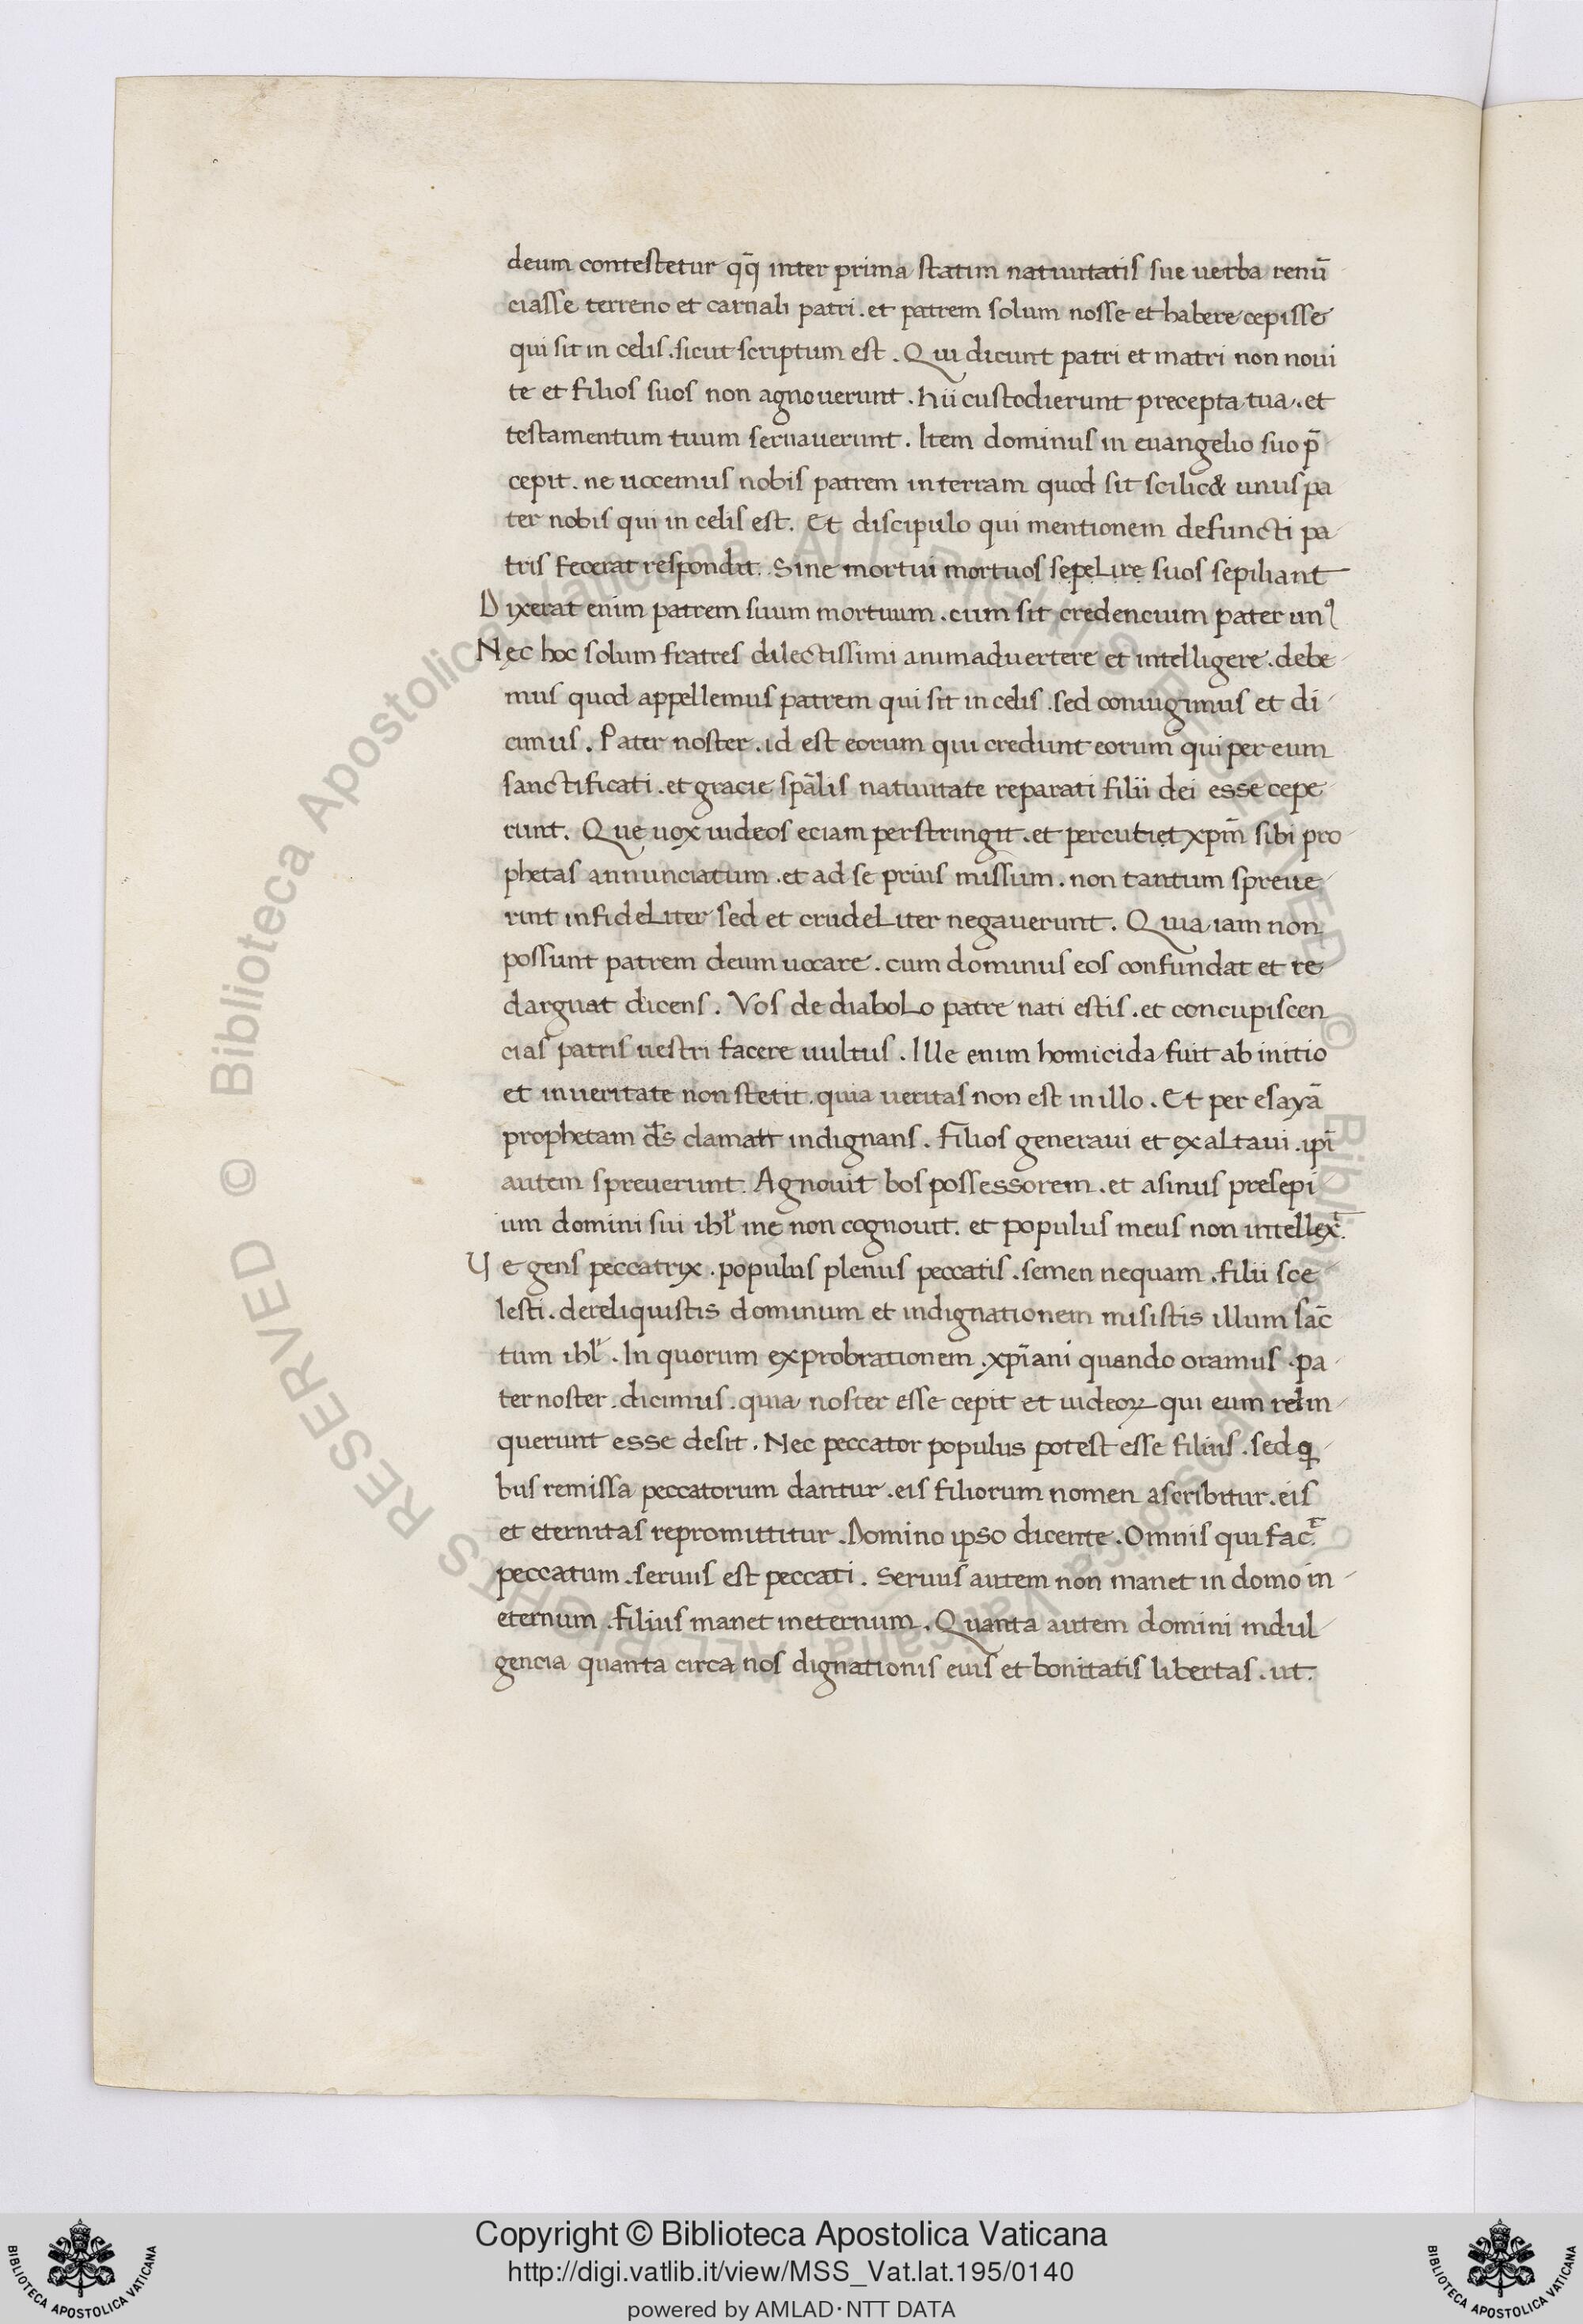 deum contestetur qq̄ inter prima statim natiuitatis sue uerba renū
ciasse terreno et carnali patri . et patrem solum nosse et habere cepisse
qui sit in celis . sicut scriptum est . Qui dicunt patri et matri non noui
te et filios suos non agnouerunt . hii custodierunt precepta tua . et
testamentum tuum seruauerunt . Item dominus in euangelio suo p̄
cepit . ne uocemus nobis patrem in terram quod sit scilic& unus pa
ter nobis qui in celis est . Et discipulo qui mentionem defuncti pa
tris fecerat respondit . Sine mortui mortuos sepelire suos sepiliant
Dixerat enim patrem suum mortuum . cum sit credencium pater unꝰ
Nec hoc solum fratres dilectissimi animaduertere et intelligere . debe
mus quod appellemus patrem qui sit in celis . sed coniugimus et di
cimus . Pater noster . id est eorum qui credunt eorum qui per eum
sanctificati . et gracie sp̄alis natiuitate reparati filii dei esse cepe
runt . Que uox iudeos eciam perstringit . et percutiet xp̄m sibi pro
phetas annunciatum . et ad se prius missum . non tantum spreue
rint infideliter sed et crudeliter negauerunt . Quia iam non
possunt patrem deum uocare . cum dominus eos confundat et re
darguat dicens . Vos de diabolo patre nati estis . et concupiscen
cias patris uestri facere uultus . Ille enim homicida fuit ab initio
et in ueritate non stetit . quia ueritas non est in illo . Et per esayā
prophetam d̄s clamatt indignans . Filios generaui et exaltaui . ip̄i
autem spreuerunt . Agnouit bos possessorem . et asinus presepi
um domini sui ihl̄ me non cognouit . et populus meus non intellex̄
Ve gens peccatrix . populus plenus peccatis . semen nequam . filii sce
lesti . dereliquistis dominum et indignationem misistis illum sac̄
tum ihl̄ . In quorum exprobrationem . xp̄iani quando oramus . pa
ter noster . dicimus . quia noster esse cepit et iudeoꝝ qui eum relin
querunt esse desit . Nec peccator populus potest esse filius . sed ꝗ
bus remissa peccatorum dantur . eis filiorum nomen ascribitur . eis
et eternitas repromittitur . Domino ipso dicente . Omnis qui fac̄
peccatum . seruus est peccati . Seruus autem non manet in domo in
eternum . filius manet in eternum . Quanta autem domini indul
gencia quanta circa nos dignationis euis et bonitatis libertas . ut .
Copyright © Biblioteca Apostolica Vaticana
http://digi.vatlib.it/view/MSS_Vat.lat.195/0140
powered by AMLAD·NTT DATA
BIBLIOTECA APOSTOLICA VATICANA
BIBLIOTECA APOSTOLICA VATICANA
© Biblioteca Apostolica Vaticana ALL RIGHTS RESERVED © Biblioteca Apostolica Vaticana ALL RIGHTS RESERVED